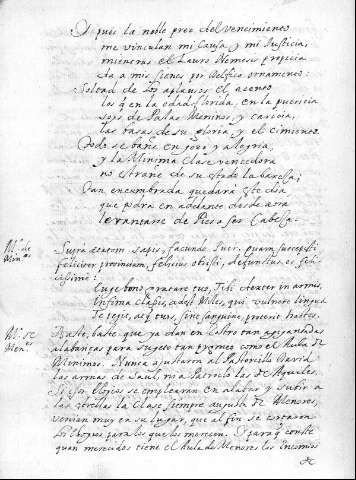 Y pues la noble prez del vencimiento
me vinculan mi Causa y mi Justicia,
mientras el Lauro Nemeso propicia
da a mis sienes por Delfico ornamento.
Soltad de los aplausos el acento
los q̃ en la edad florida, en la puericia
sois de Palas Meninos y caricia,
las basas de su gloria y el cimiento.
Todo se bañe en gozo y alegria,
y la Minima Clase vencedora
no estrañe de su estado la bareza;
Tan encumbrada quedará este dia
que podra en adelante desde aora
levantarse de Pies a ser Cabeza.
Mº de Minºˢ
Supra aetatem sapis, facunde Puer, quam suscepisti
feliciter provinciam, felicius obisti, defunctus es feli-
cissime:
Euge tons precare tuo, Tibi
Infima Classis, adest Miles, qui vulnere lingua
Te regit, atq̃ tuos, sine sanguine, hostes.
Mº de Menºˢ
Baste, baste que ya dan en rostro tan agigantadas
alabanças para sugeto tan pigmeo como el Aula de
Minimos. Nunca ajustaron al Pastorcillo David
las armas de Saul, ni a Patroclo las de Aquiles.
Si esos elogios se emplearan en alabar y subir a
las estrellas la Clase siempre augusta de Menores,
venian muy en su lugar, que al fin se
los elogios para los que los merecen. Y para q̃ conste
quan merecidos tiene el Aula de Menores los Encomios